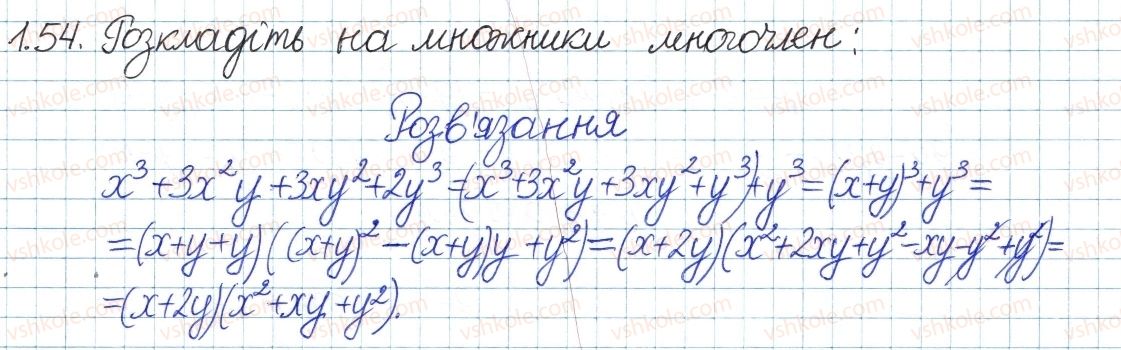 1.54. Розкладіть на множники многочлен:
Розв'язання
x³+3x²y+3xy²+2y³=(x³+3x²y+3xy²+y³)+y³=(x+y)³+y³=
=(x+y+y)((x+y)²-(x+y)y+y²)=(x+2y)(x²+2xy+y²-xy-y²+y²)=
=(x+2y)(x²+xy+y²).